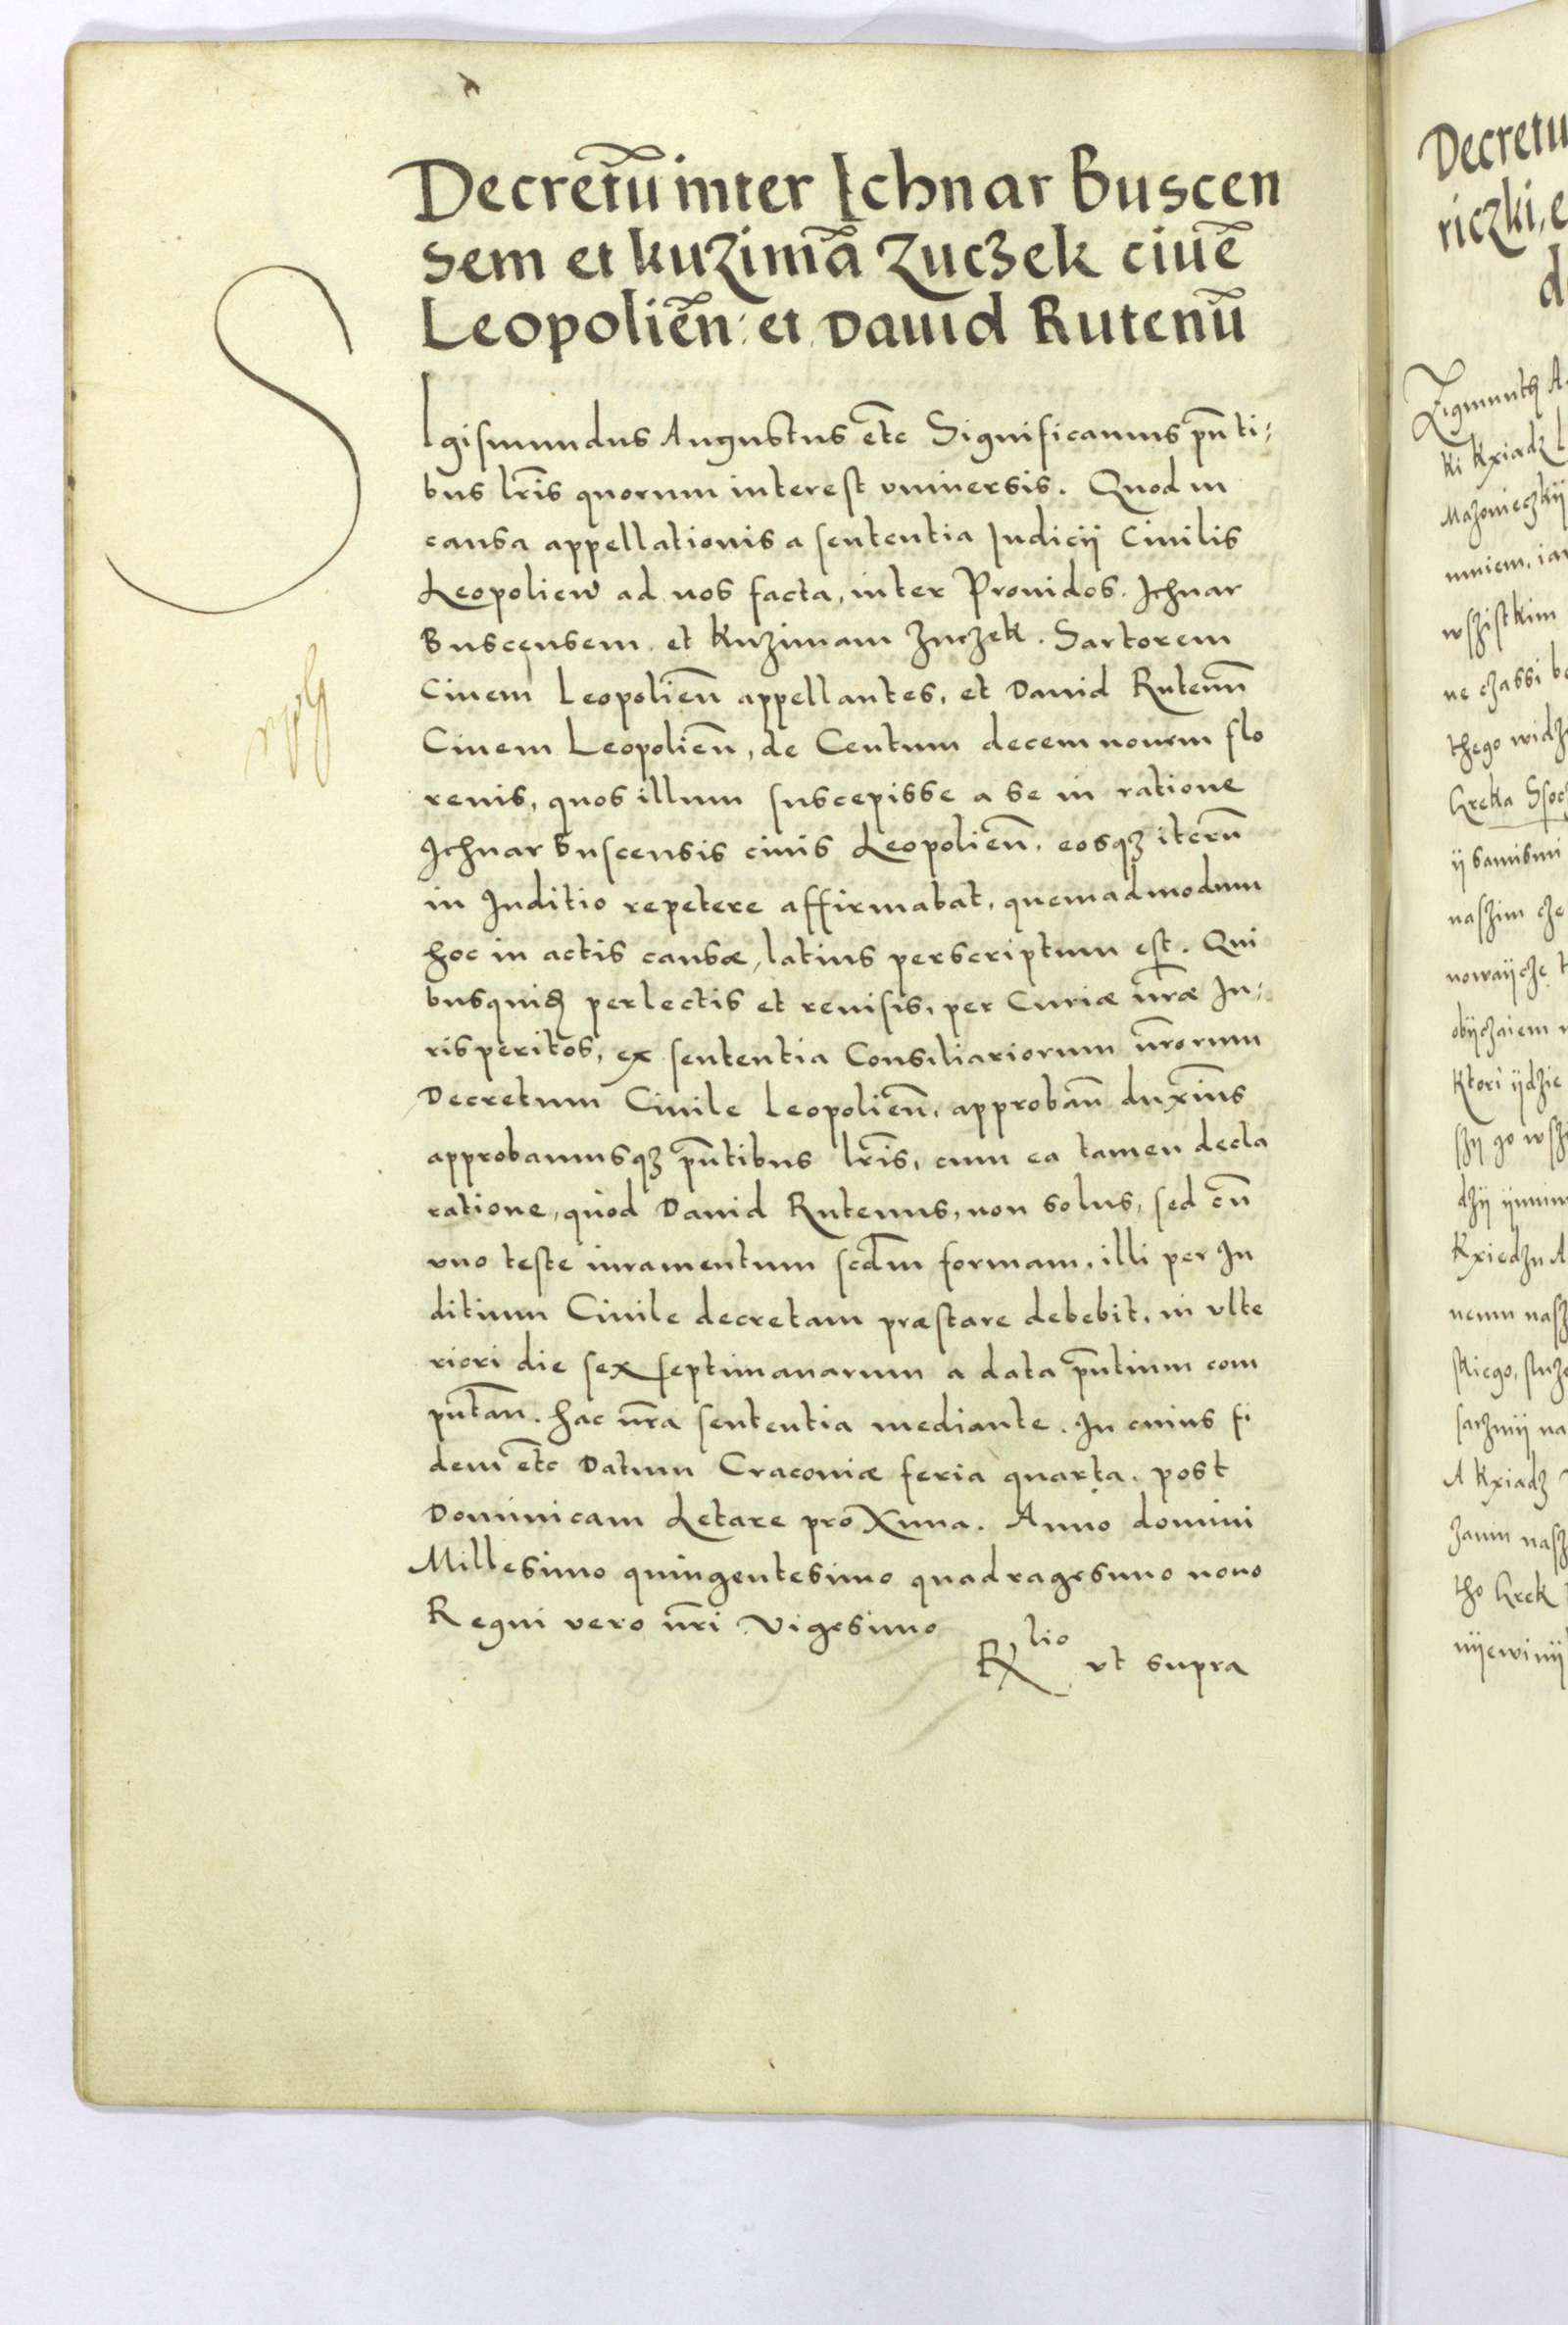 Decretū inter Ichnar Buscen
sem et kuzimā Zuczek ciuē
Leopoliēn: et Dauid Rutenū
SIgismundus Augustus etc̄ Significamus pn̄ti:
bus lr̄is quorum interest vniuersis. Quod in
causa appellationis a sententia Iudicij Ciuilis
Leopolien̄ ad nos facta, inter Prouidos. Ichnar
Buscensem. et Kuzimam Zuczek. Sartorem
Ciuem Leopolien̄ appellantes, et Dauid Rutenū
Ciuem Leopolien̄, de Centum decem nouem flo
renis, quos illum suscepisse a se in ratione
Ichnar Buscensis ciuis Leopolien̄. eosqꝫ iterū
in Iuditio repetere affirmabat, quemadmodum
hoc in actis causæ, latius perscriptum est. Qui
busquidꝫ perlectis et reuisis, per Curiæ nr̄æ Iu:
risperitos, ex sententia Consiliariorum nr̄orum
Decretum Ciuile Leopolien̄, approban̄ duxim̄s
approbamusqꝫ pn̄tibus lr̄is, cum ea tamen decla
ratione, quòd Dauid Rutenus, non solus, sed cū
vno teste iuramentum scd̄m formam, illi per Iu
ditium Ciuile decretam præstare debebit, in vlte
riori die sex septimanarum a data pn̄tium com
putan̄. hac nr̄a sententia mediante. In cuius fi
dem etc̄ Datum Cracouiæ feria quarta. post
Dominicam Letare proxima. Anno domini
Millesimo quingentesimo quadragesimo nono
Regni vero nr̄i Vigesimo
Rlio ut supra
Decretu
riczki, e
d
Zigmunth A
ki Kxiadz l
Mazowieczkij
wszistkim
ne czassi be
thego widz
Greka Ssoc
ij samismi
naszim cze
nowaijcze t
obijczaiem
Ktori ijdzie
szij go wsz
dzij ijnnim
Kxiedzu A
nemu nasz
skiego, sluz
A Kxiadz
tho Grek